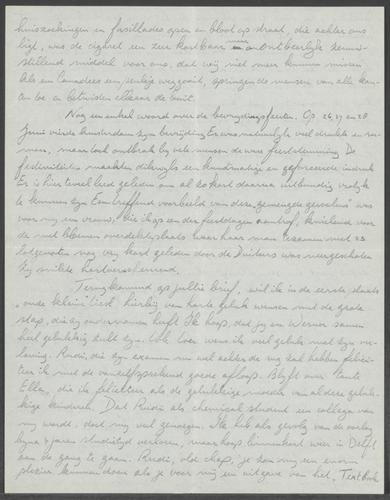 huiszoekingen en fusillades open en bloot op straat, die achter ons
ligt, was de cigaret een zeer kostbaar en onontbeerlijk zenuw-
stillend middel voor ons, dat wij niet meer kunnen missen
Als een Canadees een peukje weggooit, springen de menschen van alle kan-
ten toe en betwisten elkaar de buit.
Nog een enkel woord over de bevrijdingsfeesten. Op 26, 27 en 28
Juni vierde Amsterdam zijn bevrijding Er was natuurlijk veel drukte en ru-
moer, maar toch ontbrak bij vele menschen de ware feeststemming De
festiviteiten maakten dikwijls een kunstmatige en geforceerde indruk
Er is hier teveel leed geleden om al zoo kort daarna uitbundig vroolijk
te kunnen zijn Een treffend voorbeeld van deze "gemengde gevoelens" was
voor mij een vrouw, die ik op een der feestdagen aantrof, knielend voor
de met bloemen overdekte plaats waar haar man tezamen met 23
lotgenooten nog zeer kort geleden door de Duitsers was neergeschoten
Zij snikte hartverscheurend.
Terugkomend op jullie brief, wil ik in de eerste plaats
"onze kleine" Liesl hierbij van harte geluk wenschen met de groote
stap, die zij ondernomen heeft Ik hoop, dat jij en Werner samen
heel gelukkig zult zijn. Ook Coen wens ik veel geluk met zijn ver-
loving. Rudi, die zijn examen nu wel achter de rug zal hebben felici-
teer ik met de vanzelfsprekend goede afloop. Blijft over Tante
Ella, die ik feliciteer als de gelukkige moeder van al deze geluk-
kige kinderen. Dat Rudi als chemical student een collega van
mij wordt, doet mij veel genoegen. Ik heb als gevolg van de oorlog
bijna 3 jaren studietijd verloren, maar hoop binnenkort weer in Delft
aan de gang te gaan. Rudi, olde chap, je kan mij een enorm
plezier kunnen doen als je voor mij een uitgave van het "Textbook